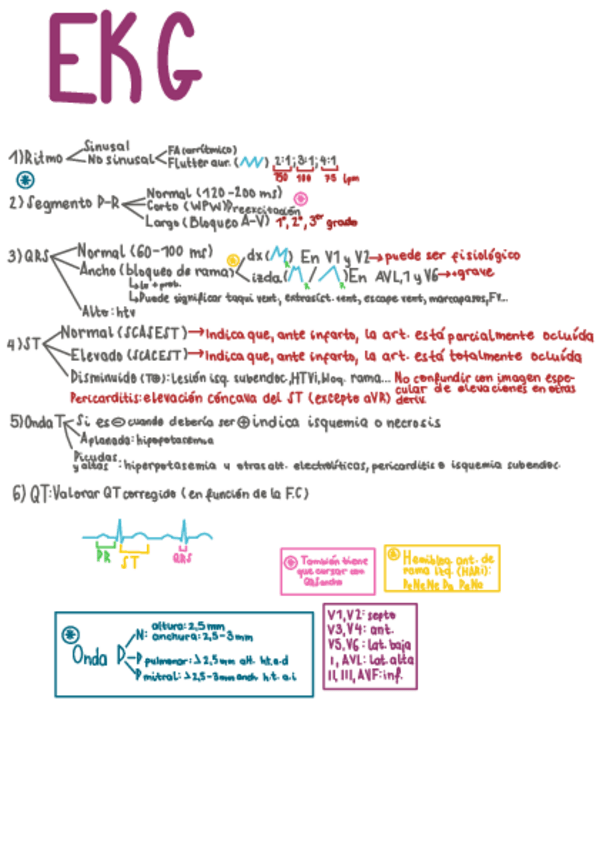 EKG
Sinusal
1) Ritmo
No sinusal
FA (arrítmico)
Flutter aur. ( ) 2:1; 3:1; 4:1
150 100 75 lpm
2) Segmento P-R
Normal (120-200 ms)
Corto (WPW) Preexcitación
Largo (Bloqueo A-V) 1º, 2º, 3er grado
3) QRS
Normal (60-100 ms)
Ancho (bloqueo de rama)
dx ( ) En V1 y V2 → puede ser fisiológico
izda ( / ) En AVL, 1 y V6 → grave
Lo + prob.
Puede significar taqui vent, extrasíst. vent, escape vent, marcapasos, FV...
Alto: htv
4) ST
Normal (SCASEST) → Indica que, ante infarto, la art. está parcialmente ocluída
Elevado (SCACEST) → Indica que, ante infarto, la art. está totalmente ocluída
Disminuido : Lesión isq. subendoc, HTVi, bloq. rama... No confundir con imagen espe-
cular de elevaciones en otras
deriv.
Pericarditis: elevación cóncava del ST (excepto aVR)
5) Onda T
Si es ⊖ cuando debería ser ⊕ indica isquemia o necrosis
Aplanada: hipopotasemia
Picudas
y altas : hiperpotasemia u otras alt. electrolíticas, pericarditis o isquemia subendoc.
6) QT: Valorar QT corregido (en función de la F.C)
PR
ST
QRS
También tiene
que cursar con
QRS ancho
Hemibloq. ant. de
rama izq. (HARI):
altura: 2,5 mm
N: anchura: 2,5-3 mm
Onda P
P pulmonar: > 2,5 mm alt. ht.a.d
P mitral: > 2,5-3 mm anch h.t. a.i
V1, V2: septo
V3, V4: ant.
V5, V6: lat. baja
I, AVL: lat. alta
II, III, AVF: inf.